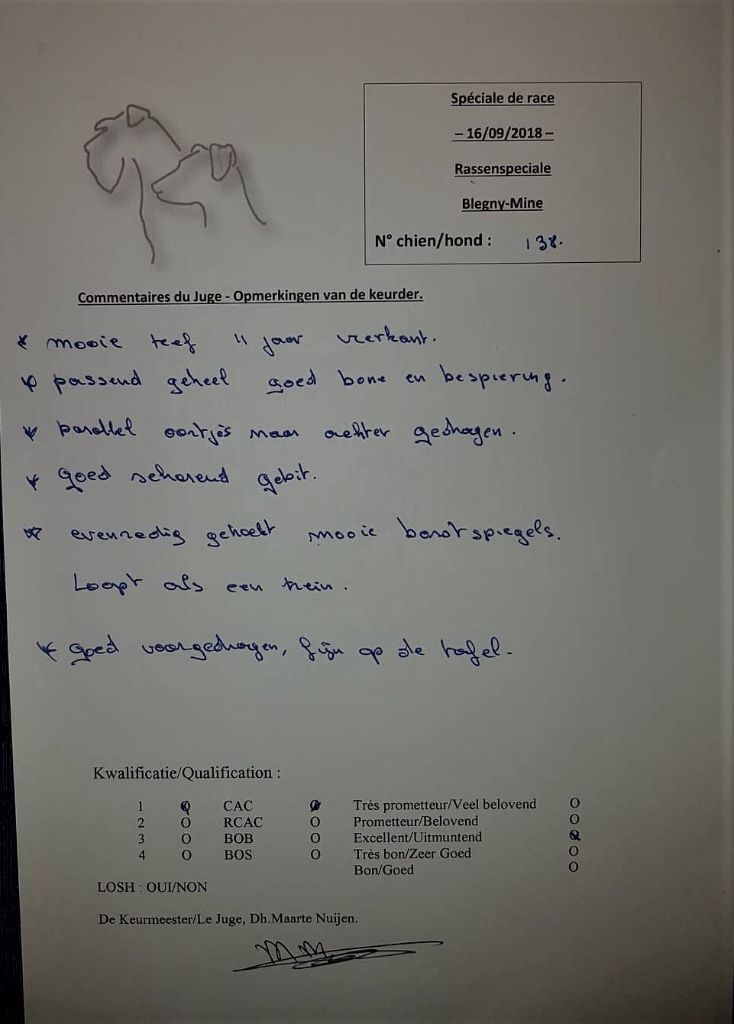 Spéciale de race
– 16/09/2018 –
Rassenspeciale
Blegny-Mine
N° chien/hond : 138.
Commentaires du Juge - Opmerkingen van de keurder.
* mooie teef 4 jaar vierkant.
* passend geheel goed bone en bespiering.
* parallel oortjes naar achter gedragen.
* goed scharend gebit.
* evenredig gehoekt mooie borstspiegels.
Loopt als een trein.
* goed voorgedragen, fijn op de tafel-
Kwalificatie/Qualification :
1 O CAC O Très prometteur/Veel belovend O
2 O RCAC O Prometteur/Belovend O
3 O BOB O Excellent/Uitmuntend O
4 O BOS O Très bon/Zeer Goed O
Bon/Goed O
LOSH : OUI/NON
De Keurmeester/Le Juge, Dh.Maarte Nuijen.